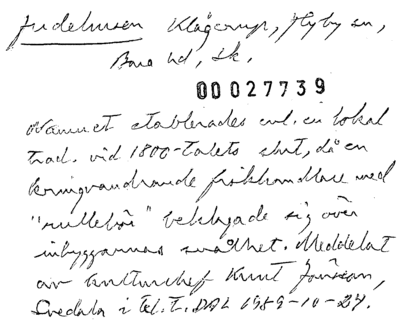 Judehusen Klågerup, Hyby sn,
Bara hd, Sk.
00027739
Namnet etablerades enl. en lokal
trad. vid 1800-talets slut, då en
kringvandrande fiskhandlare med
"rullebör" beklagade sig över
inbyggarnas snålhet. Meddelat
av kulturchef Knut Jönsson,
Svedala i tel.t. DAL 1989-10-24.